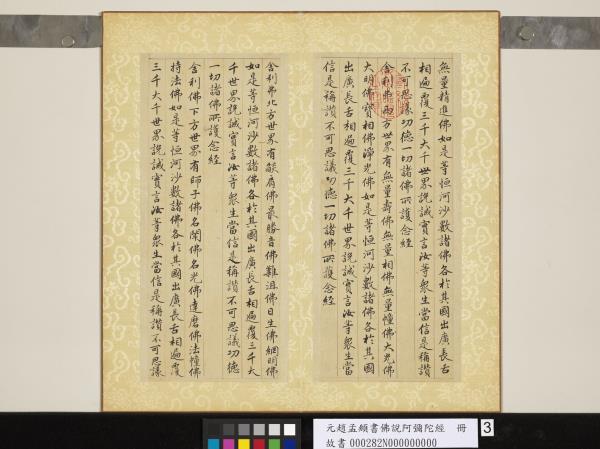 無量精進佛如是等恒河沙數諸佛各於其國出廣長舌
相遍覆三千大千世界說誠實言汝等衆生當信是稱讚
不可思議功德一切諸佛所護念經
舍利弗西方世界有無量壽佛無量相佛無量幢佛大光佛
大明佛寶相佛淨光佛如是等恒河沙數諸佛各於其國
出廣長舌相遍覆三千大千世界說誠實言汝等衆生當
信是稱讚不可思議功德一切諸佛所護念經
舍利弗北方世界有燄肩佛最勝音佛難沮佛日生佛網明佛
如是等恒河沙數諸佛各於其國出廣長舌相遍覆三千大
千世界說誠實言汝等衆生當信是稱讚不可思議功德
一切諸佛所護念經
舍利弗下方世界有師子佛名聞佛名光佛達磨佛法幢佛
持法佛如是等恒河沙數諸佛各於其國出廣長舌相遍覆
三千大千世界說誠實言汝等衆生當信是稱讚不可思議
元趙孟頫書佛說阿彌陀經 冊
故書 000282N000000000
3